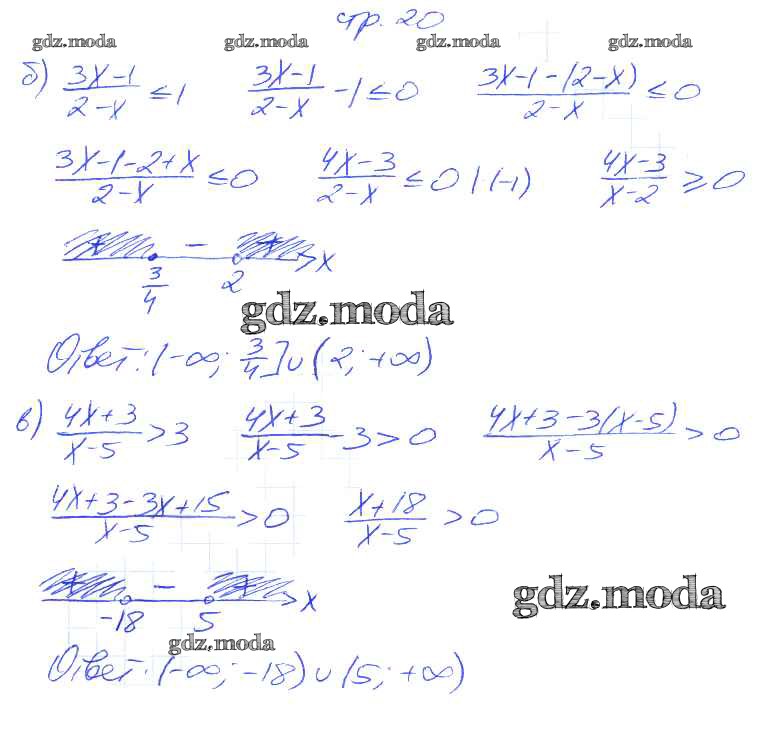 стр. 20
gdz.moda gdz.moda gdz.moda gdz.moda
б) (3x-1)/(2-x) ≤ 1 (3x-1)/(2-x) - 1 ≤ 0 (3x-1-(2-x))/(2-x) ≤ 0
(3x-1-2+x)/(2-x) ≤ 0 (4x-3)/(2-x) ≤ 0 | (-1) (4x-3)/(x-2) ≥ 0
+ - + x
3/4 2
gdz.moda
Ответ: (-∞; 3/4] ∪ (2; +∞)
в) (4x+3)/(x-5) > 3 (4x+3)/(x-5) - 3 > 0 (4x+3-3(x-5))/(x-5) > 0
(4x+3-3x+15)/(x-5) > 0 (x+18)/(x-5) > 0
+ - + x
gdz.moda
-18 5
gdz.moda
Ответ: (-∞; -18) ∪ (5; +∞)